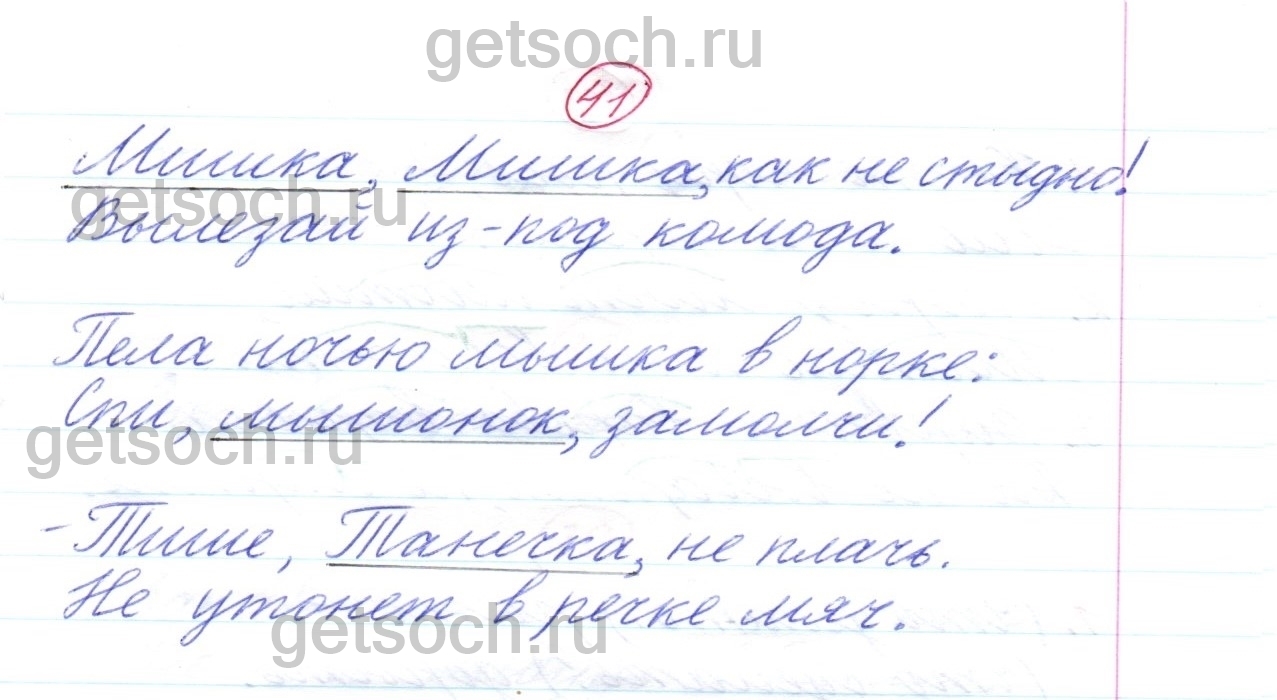 getsoch.ru
41
Мишка, Мишка, как не стыдно!
getsoch.ru
Вылезай из-под комода.
Пела ночью мышка в норке:
Спи, мышонок, замолчи!
getsoch.ru
- Тише, Танечка, не плачь.
Не утонет в речке мяч.
getsoch.ru